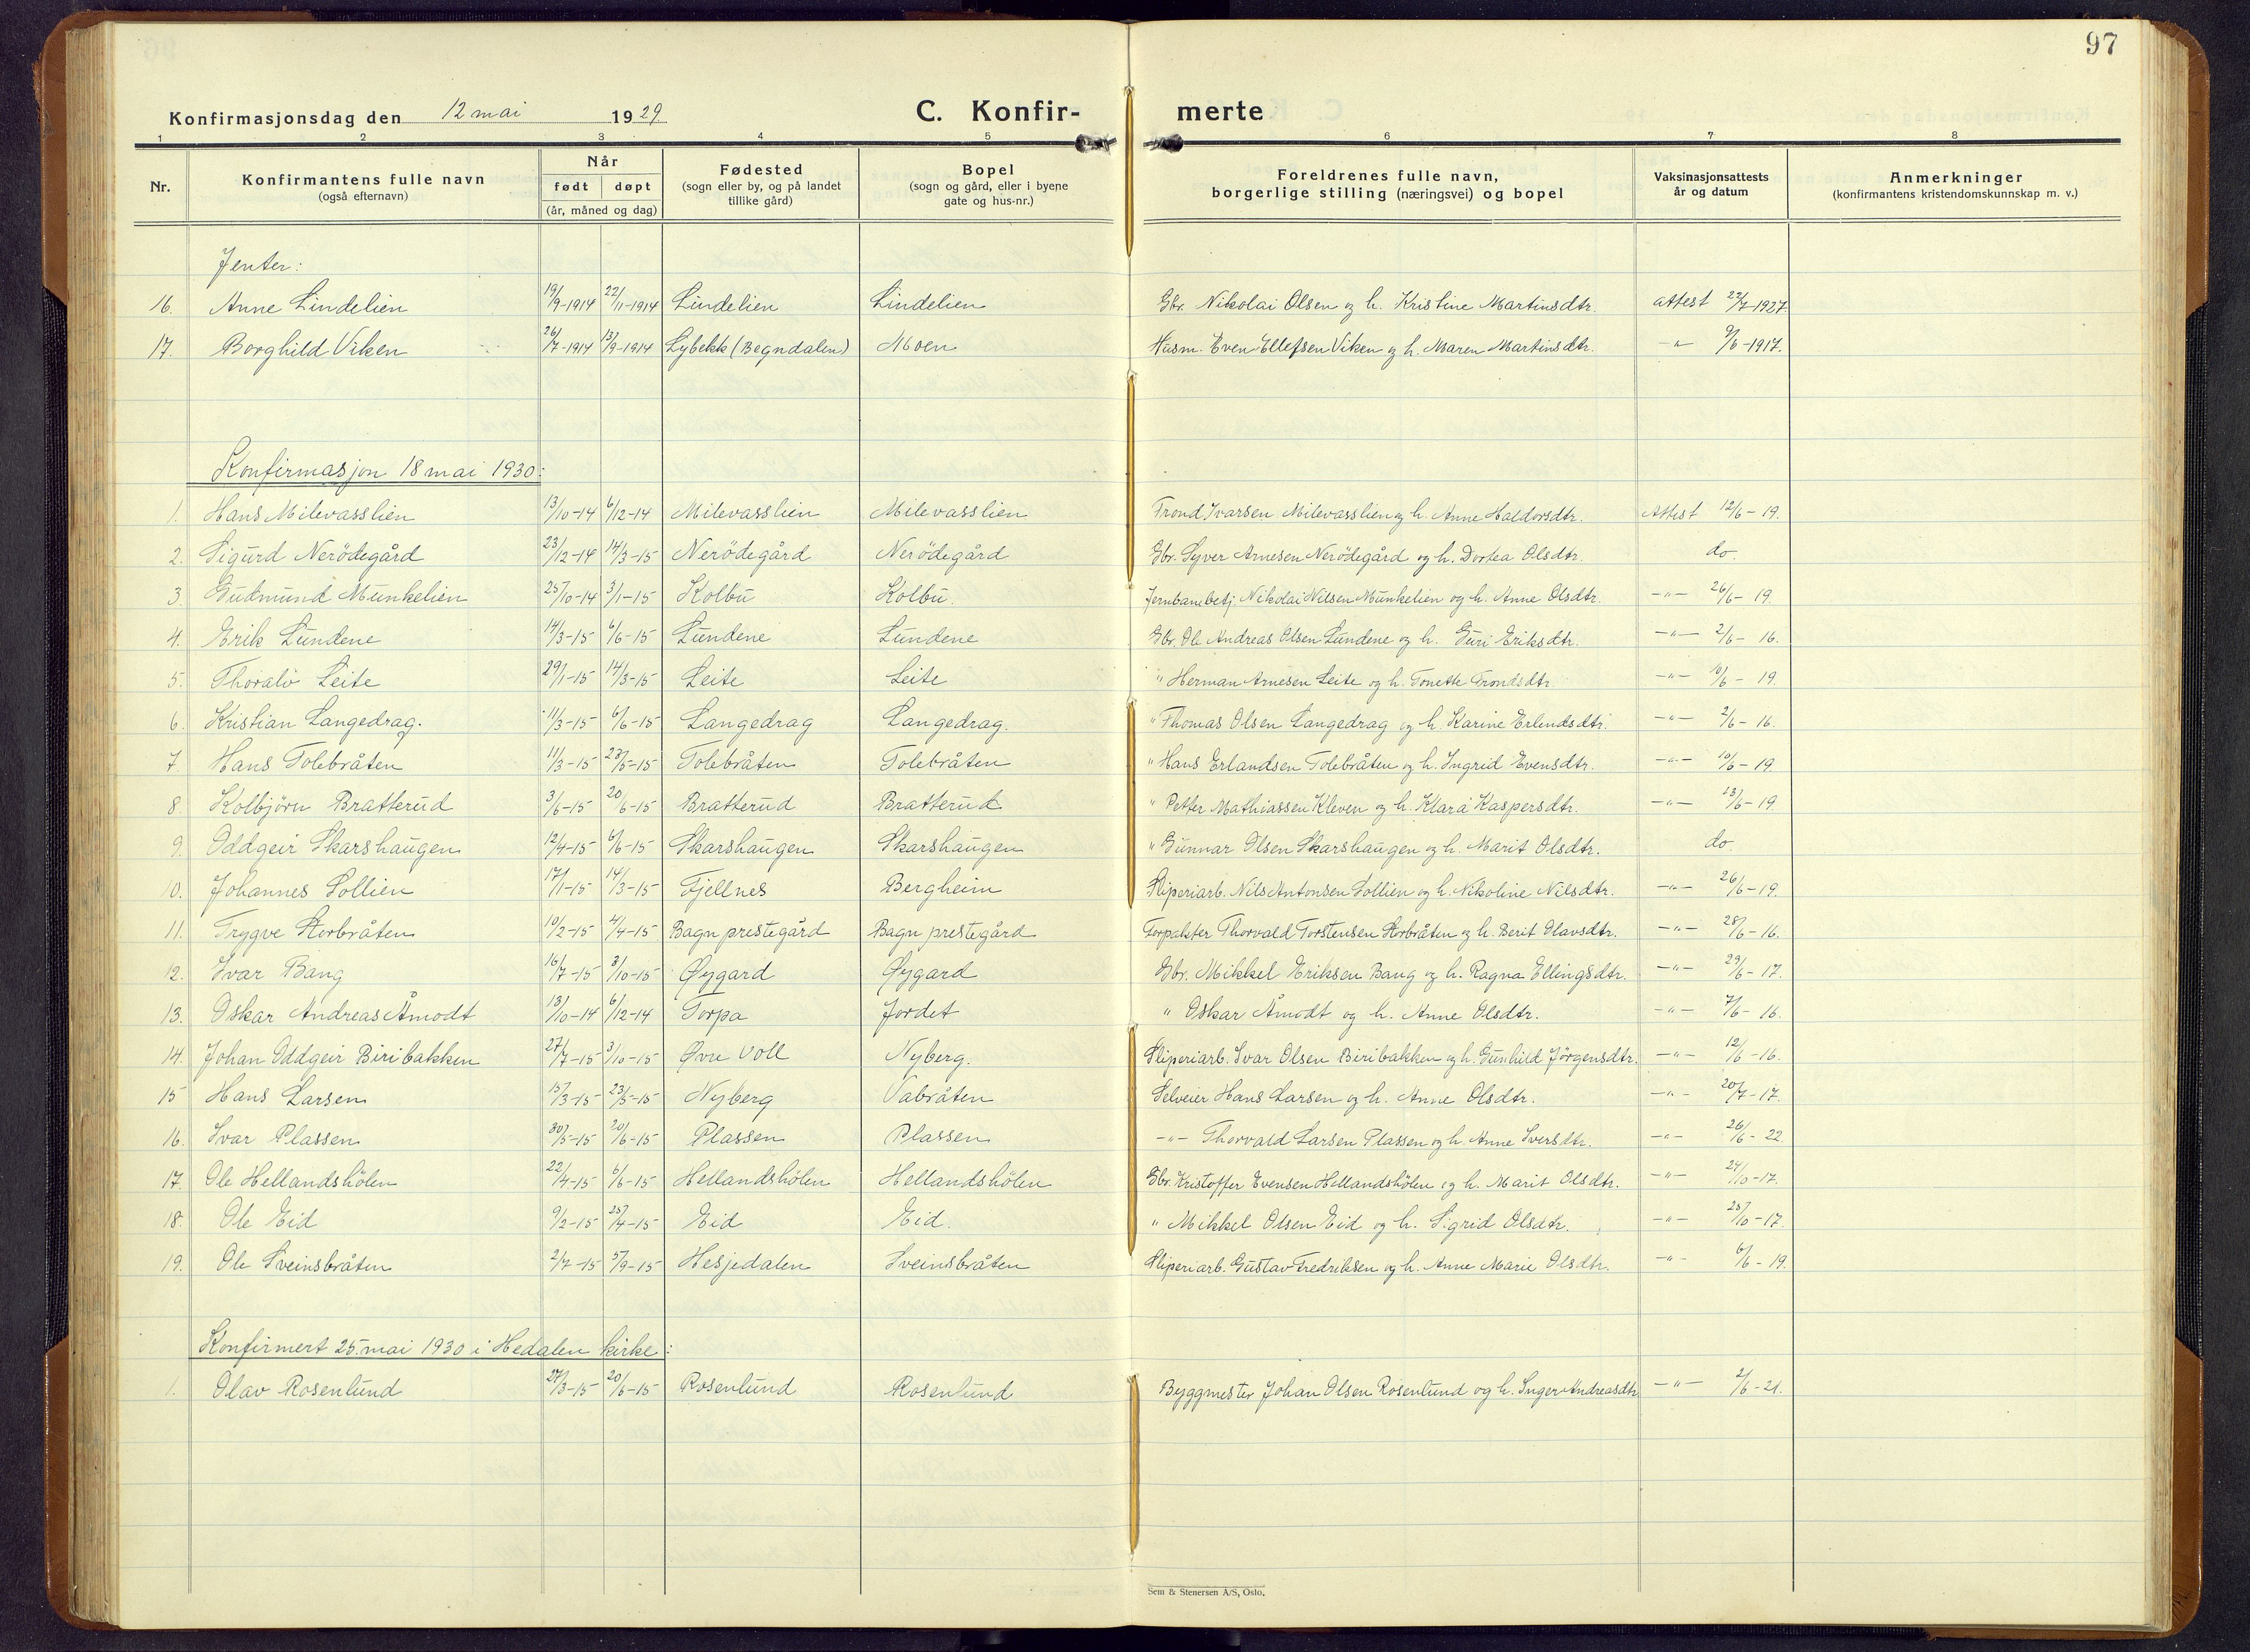 97
Konfirmasjonsdag den 12 mai 1929 C. Konfir- merte
1 2 3 4 5 6 7 8
Nr. Konfirmantens fulle navn (også efternavn) Når født døpt (år, måned og dag) Fødested (sogn eller by, og på landet tillike gård) Bopel (sogn og gård, eller i byene gate og hus-nr.) Foreldrenes fulle navn, borgerlige stilling (næringsvei) og bopel Vaksinasjonsattests år og datum Anmerkninger (konfirmantens kristendomskunnskap m. v.)
Jenter:
16. Anne Lindelien 19/9-1914 22/11-1914 Lindelien Lindelien Gbr. Nikolai Olsen og h. Kristine Martinsdtr. attest 22/7-1927.
17. Borghild Viken 26/7-1914 13/9-1914 Lybekk (Begndalen) Moen Husm. Even Ellefsen Viken og h. Maren Martinsdtr. -"- 9/6-1917.
Konfirmasjon 18 mai 1930:
1. Hans Milevasslien 13/10-14 6/12-14 Milevasslien Milevasslien Trond Ivarsen Milevasslien og h. Anne Haldorsdtr. Attest 12/6-19.
2. Sigurd Nerödegård 23/12-14 14/3-15 Nerödegård Nerödegård Gbr. Syver Arnesen Nerödegård og h. Dortea Olsdtr. do.
3. Gudmund Munkelien 25/10-14 3/1-15 Kolbu Kolbu. Jernbanebetj. Nikolai Nilsen Munkelien og h. Anne Olsdtr. -"- 26/6-19.
4. Erik Lundene 14/3-15 6/6-15 Lundene Lundene Gbr. Ole Andreas Olsen Lundene og h. Guri Eriksdtr. -"- 2/6-16.
5. Thoralv Leite 29/1-15 14/3-15 Leite Leite " Herman Arnesen Leite og h. Tonette Trondsdtr. -"- 10/6-19.
6. Kristian Langedrag. 11/3-15 6/6-15 Langedrag Langedrag. " Thomas Olsen Langedrag og h. Karine Erlendsdtr. -"- 2/6-16.
7. Hans Tolebråten 11/3-15 23/5-15 Tolebråten Tolebråten " Hans Erlandsen Tolebråten og h. Ingrid Evensdtr. -"- 10/6-19.
8. Kolbjörn Bratterud 3/6-15 20/6-15 Bratterud Bratterud " Petter Mathiassen Kleven og h. Klara Kaspersdtr. -"- 13/6-19.
9. Oddgeir Skarshaugen 12/4-15 6/6-15 Skarshaugen Skarshaugen " Gunnar Olsen Skarshaugen og h. Marit Olsdtr. do.
10. Johannes Sollien 17/1-15 14/3-15 Fjellnes Bergheim Sliperiarb. Nils Antonsen Sollien og h. Nikoline Nilsdtr. -"- 26/6-19.
11. Trygve Storbråten 10/2-15 4/4-15 Bagn prestegård Bagn prestegård Forpakter Thorvald Torstensen Storbråten og h. Berit Olavsdtr. -"- 28/6-16.
12. Ivar Bang 16/7-15 3/10-15 Øygard Øygard Gbr. Mikkel Eriksen Bang og h. Ragna Ellingsdtr. -"- 29/6-17.
13. Oskar Andreas Åmodt 13/10-14 6/12-14 Torpa Jordet " Oskar Åmodt og h. Anne Olsdtr. -"- 7/6-16.
14. Johan Oddgeir Biribakken 27/7-15 3/10-15 Øvre Voll Nyberg. Sliperiarb. Ivar Olsen Biribakken og h. Gunhild Jörgensdtr. -"- 12/6-16.
15 Hans Larsen 15/3-15 23/5-15 Nyberg Vabråten Selveier Hans Larsen og h. Anne Olsdtr. -"- 20/7-17.
16. Ivar Plassen 30/5-15 20/6-15 Plassen Plassen -"- Thorvald Larsen Plassen og h. Anne Iversdtr. -"- 26/6-22.
17. Ole Hellandshölen 22/4-15 6/6-15 Hellandshölen Hellandshölen Gbr. Kristoffer Evensen Hellandshölen og h. Marit Olsdtr. -"- 24/10-17.
18. Ole Eid 9/2-15 25/4-15 Eid Eid. " Mikkel Olsen Eid og h. Sigrid Olsdtr. -"- 25/10-17.
19. Ole Sveinsbråten 2/7-15 5/9-15 Hesjedalen Sveinsbråten Sliperiarb. Gustav Fredriksen og h. Anne Marie Olsdtr. -"- 6/6-19.
Konfirmert 25. mai 1930 i Hedalen kirke:
1. Olav Rosenlund 27/3-15 20/6-15 Rosenlund Rosenlund Byggmester Johan Olsen Rosenlund og h. Inger Andreasdtr -"- 2/6-21.
Sem & Stenersen A/S, Oslo.